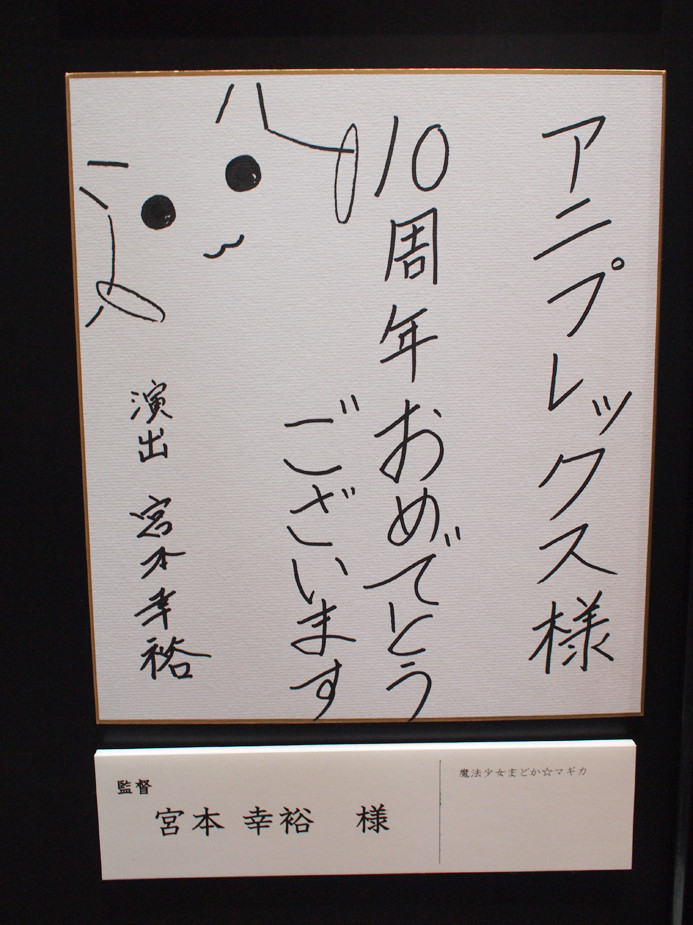 アニプレックス様
10周年おめでとう
ございます
演出 宮本幸裕
監督
宮本 幸裕 様
魔法少女まどか☆マギカ